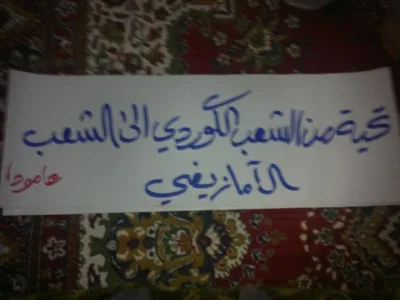 تحية من الشعب الكوردي الى الشعب
الآمازيغي
عامودا